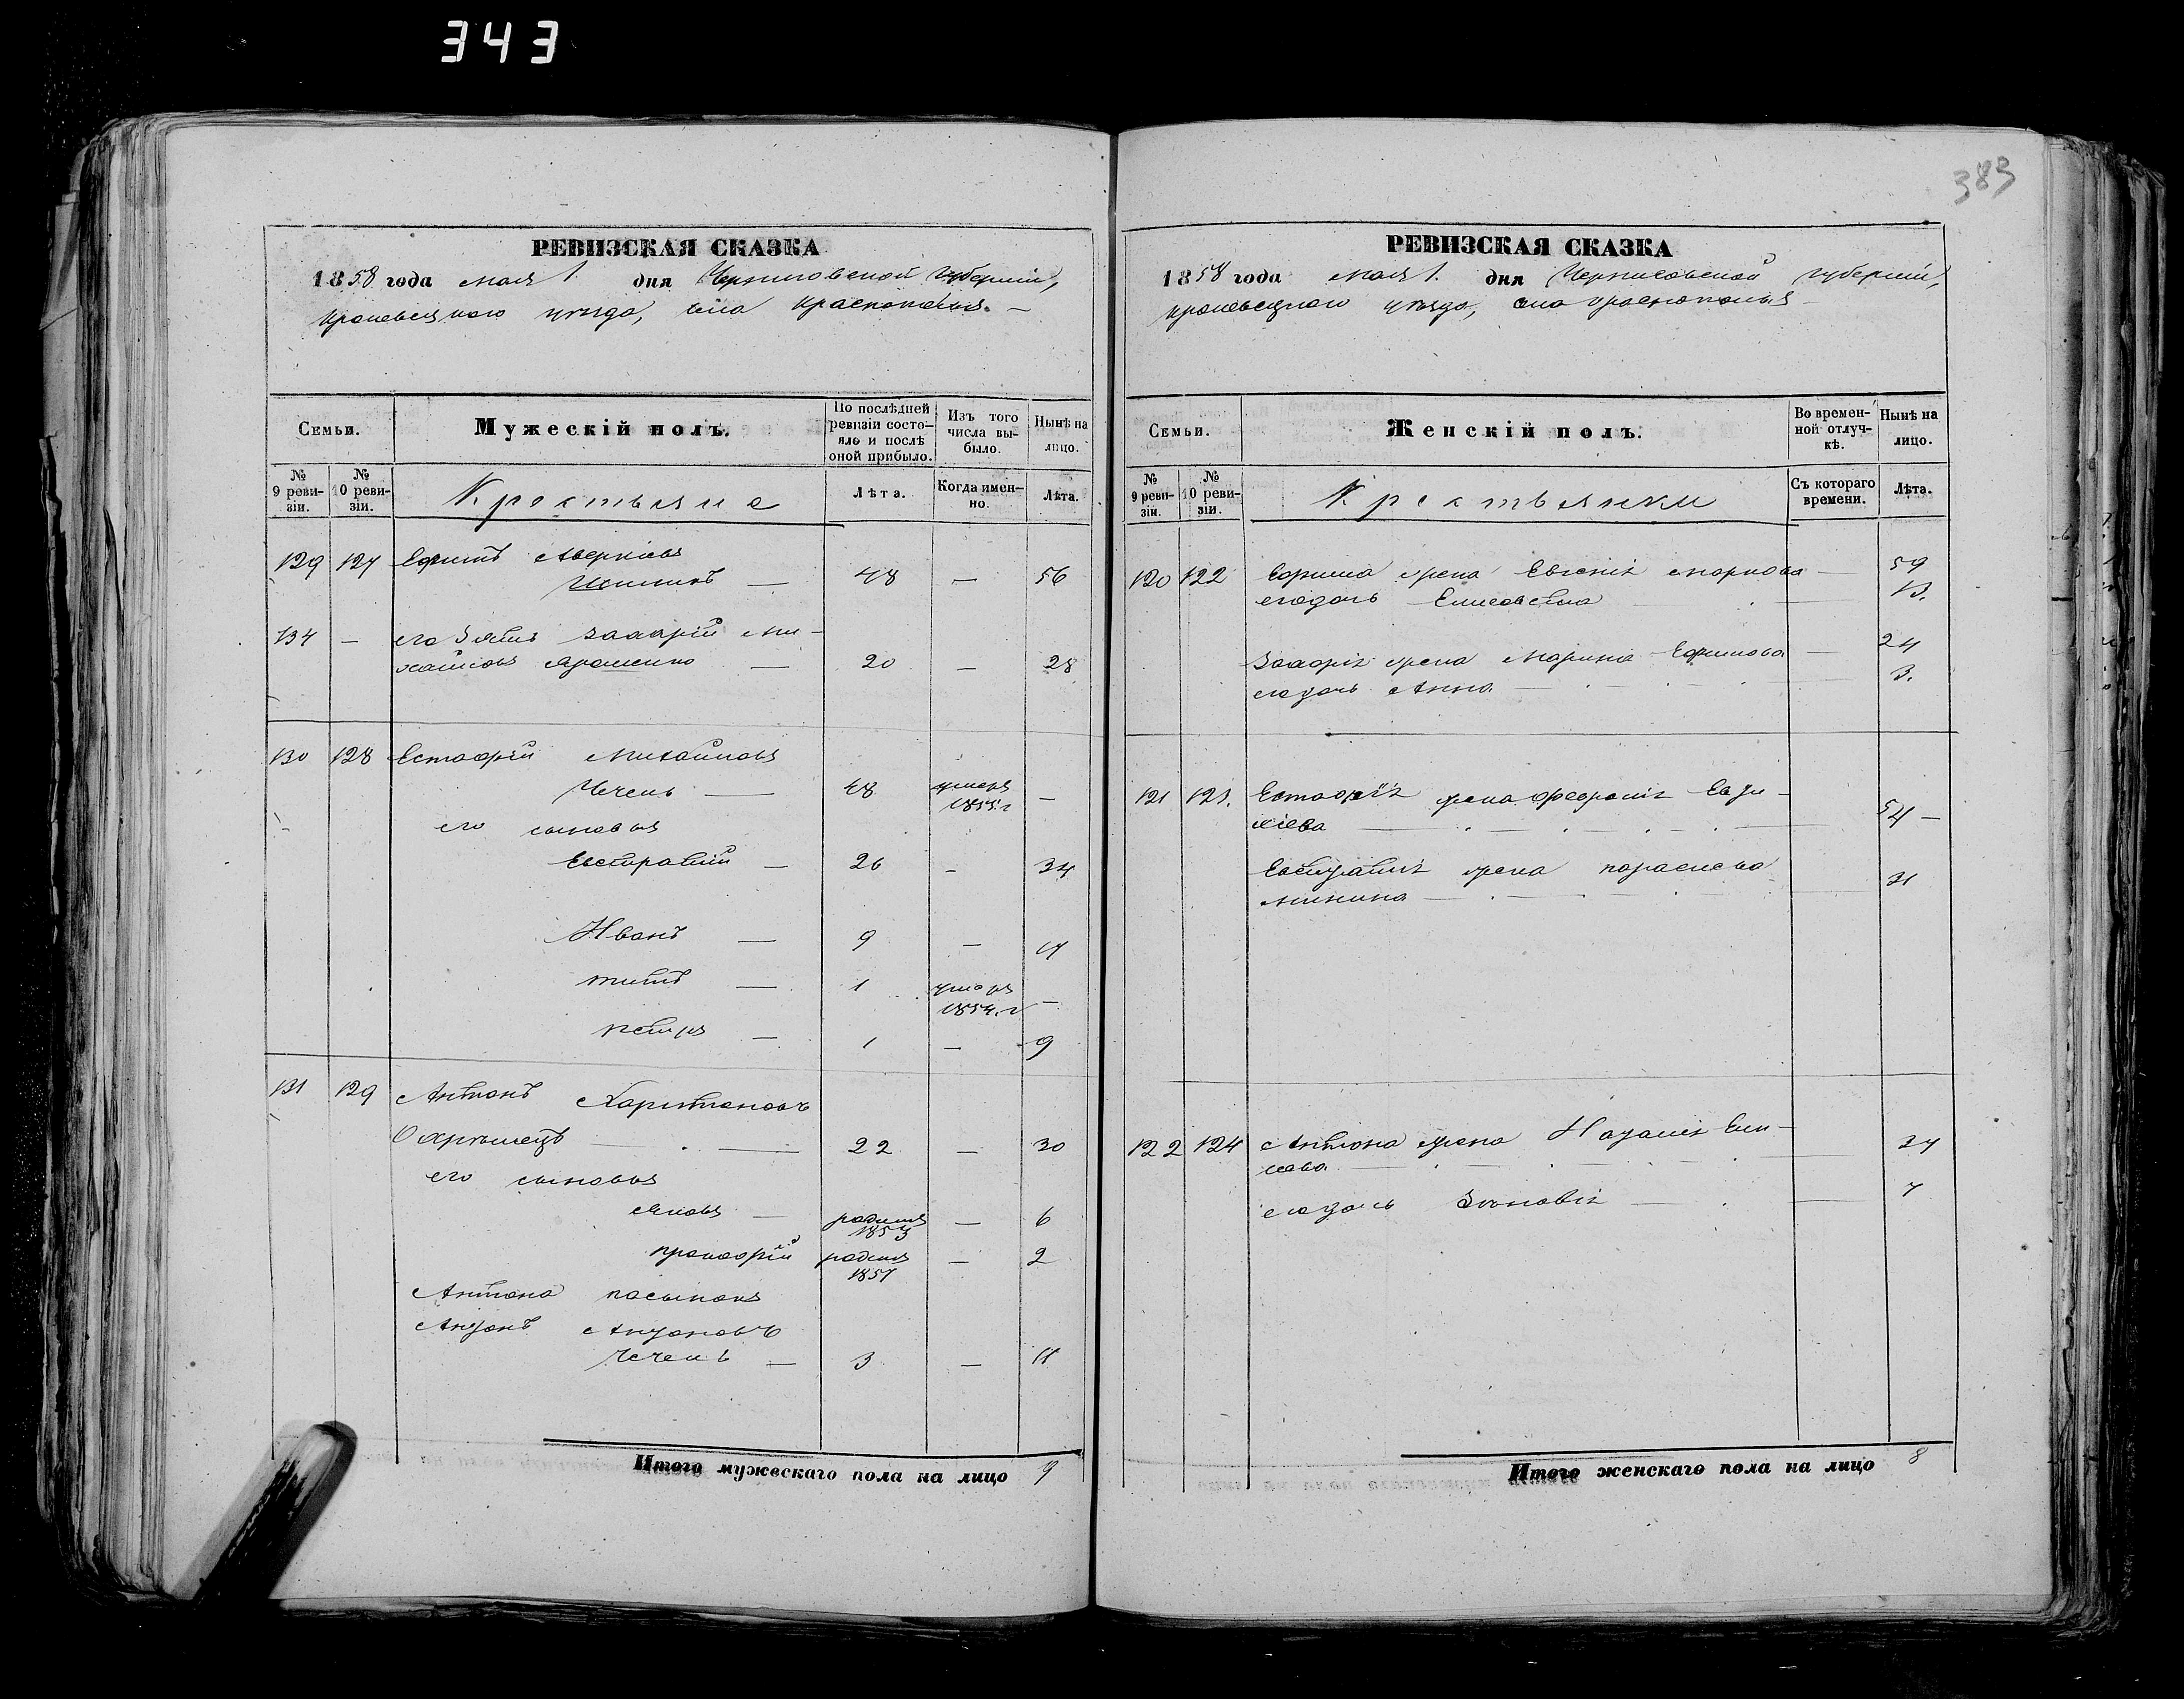 343
РЕВИЗСКАЯ СКАЗКА
1858 года мая 1. дня Черниговской губерніи,
Кролевецкого уезда, села Краснополья. —
Семьи.
Мужескій полъ.
По послѣдней ревизіи состо- яло и послѣ оной прибыло.
Изъ того числа вы- было.
Нынѣ на лицо.
№ 9 реви- зіи.
№ 10 реви- зіи.
Крестьяне
Лѣта.
Когда имен- но.
Лѣта.
129 127 Ефимъ Аверкіевъ
48 — 56
134 — его зять Захарій Ми-
хайловъ Ярошенко — 20 — 28
130 128 Естафій Михайловъ
Чечень — 48 умеръ 1855 г —
его сыновья
Евстратій — 26 — 34
Иванъ — 9 — 17
Титъ — 1 умеръ 1854. г —
Петръ — 1 — 9
131 129 Антонъ Харитоновъ
Охрѣмецъ — 22 — 30
его сыновья
Яковъ — родился 1853 — 6
Прокофій родился 1857 — 2
Антона пасынокъ
Антонъ Антоновъ
Чечень — 3 — 11
Итого мужескаго пола на лицо 9
383
РЕВИЗСКАЯ СКАЗКА
1858 года мая 1. дня Черниговской губерніи,
Кролевецкого уезда, села Краснополья —
Семьи.
Женскій полъ.
Во времен- ной отлуч- кѣ.
Нынѣ на лицо.
№ 9 реви- зіи.
№ 10 реви- зіи.
Крестьянки
Съ котораго времени.
Лѣта.
120 122 Ефима жена Евгенія Маркова — 59
его дочь Елисавета — 13.
Захарія жена Марина Ефимова — 24
его дочь Анна — 3.
121 123. Естафія жена Февронія Евди-
54 —
Евстратія жена Параскева
Минина — 31
122 124 Антона жена Наталія Ели-
сева — 37
его дочь Зиновія — 7
Итого женскаго пола на лицо 8